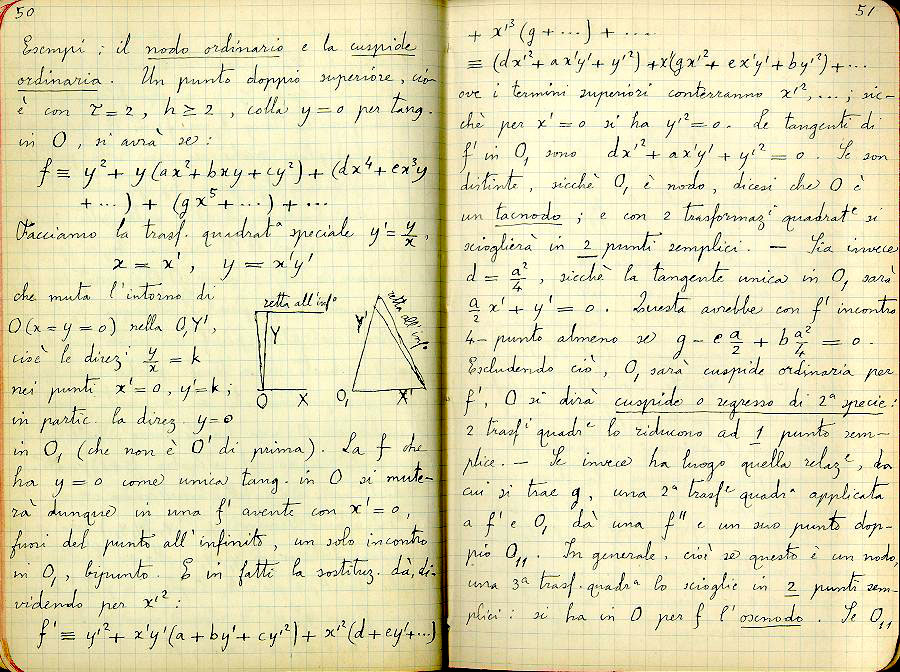 50
Esempi: il nodo ordinario e la cuspide
ordinaria. Un punto doppio superiore, cio-
è con τ = 2, h ≥ 2, colla y = 0 per tang.
in O, si avrà se:
f ≡ y² + y(ax² + bxy + cy²) + (dx⁴ + ex³y
+ ...) + (gx⁵ + ...) + ...
Facciamo la trasf. quadratᵃ speciale y' = y/x,
x = x', y = x'y'
che muta l'intorno di
O (x = y = 0) nella O₁Y',
cioè le direzⁱ y/x = k
nei punti x' = 0, y' = k;
in partic. la direz. y = 0
retta all'infᵒ
Y
O
X
retta all'infᵒ
Y'
O₁
X'
in O₁ (che non è O' di prima). La f che
ha y = 0 come unica tang. in O si mute-
rà dunque in una f' avente con x' = 0,
fuori del punto all'infinito, un solo incontro
in O₁, bipunto. E in fatti la sostituz. dà, di-
videndo per x'²:
f' ≡ y'² + x'y'(a + by' + cy'²) + x'²(d + ey' + ...)
51
+ x'³(g + ...) + ...
≡ (dx'² + ax'y' + y'²) + x'(gx'² + ex'y' + by'²) + ...
ove i termini superiori conterranno x'², ...; sic-
chè per x' = 0 si ha y'² = 0. Le tangenti di
f' in O₁ sono dx'² + ax'y' + y'² = 0. Se son
distinte, sicchè O₁ è nodo, dicesi che O è
un tacnodo; e con 2 trasformazⁱ quadratᵉ si
scioglierà in 2 punti semplici. — Sia invece
d = a²/4, sicchè la tangente unica in O₁ sarà
a/2 x' + y' = 0. Questa avrebbe con f' incontro
4-punto almeno se g - e a/2 + b a²/4 = 0.
Escludendo ciò, O₁ sarà cuspide ordinaria per
f', O si dirà cuspide o regresso di 2ᵃ specie:
2 trasfⁱ quadrᵉ lo riducono ad 1 punto sem-
plice. — Se invece ha luogo quella relazᵉ, da
cui si trae g, una 2ᵃ trasfᵉ quadrᵃ applicata
a f' e O₁ dà una f'' e un suo punto dop-
pio O₁₁. In generale, cioè se questo è un nodo,
una 3ᵃ trasf. quadrᵃ lo scioglie in 2 punti sem-
plici: si ha in O per f l'oscnodo. Se O₁₁